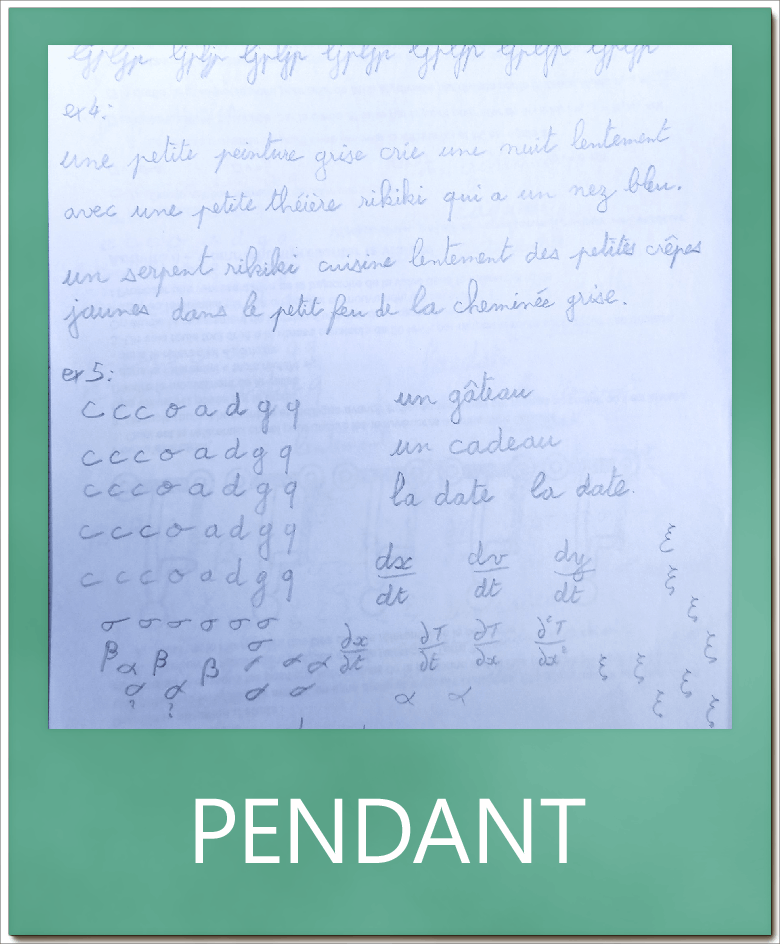 GpGp GpGp GpGp GpGp GpGp GpGp GpGp
ex4:
une petite peinture grise crie une nuit lentement
avec une petite théière rikiki qui a un nez bleu.
un serpent rikiki cuisine lentement des petites crêpes
jaunes dans le petit feu de la cheminée grise.
ex5:
c c c o a d g q un gâteau
c c c o a d g q un cadeau
c c c o a d g q la date la date.
c c c o a d g q
c c c o a d g q dx/dt dv/dt dy/dt ξ ξ ξ ξ
σ σ σ σ σ σ
β α β β σ α α ∂x/∂t ∂T/∂t ∂T/∂x ∂²T/∂x² ξ ξ ξ
α ? α ? α α α α ξ ξ
PENDANT